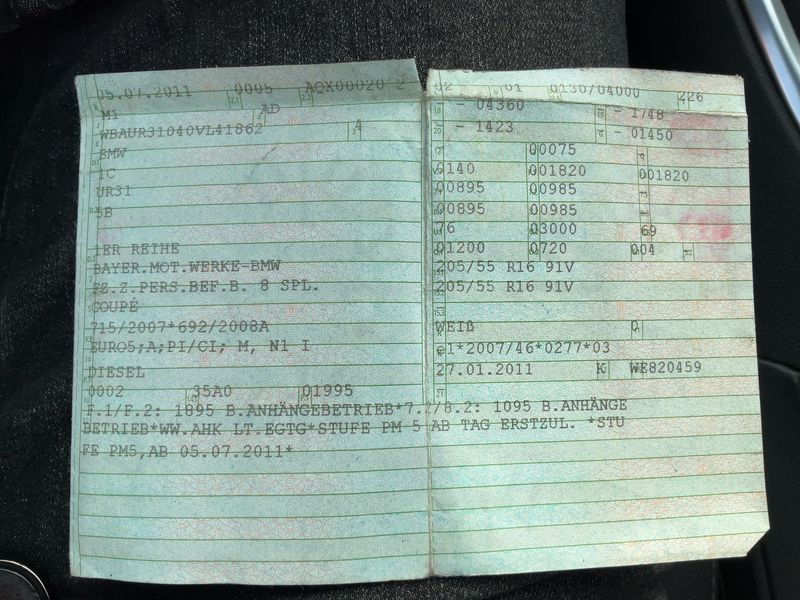 05.07.2011 0005 AQX00020 2
M1 AD
WBAUR31040VL41862 4
BMW
1C
UR31
5B
1ER REIHE
BAYER.MOT.WERKE-BMW
FZ.Z.PERS.BEF.B. 8 SPL.
COUPÉ
715/2007*692/2008A
EURO5;A;PI/CI; M, N1 I
DIESEL
0002 35A0 01995
F.1/F.2: 1895 B.ANHÄNGEBETRIEB*7.2/8.2: 1095 B.ANHÄNGE
BETRIEB*WW.AHK LT.EGTG*STUFE PM 5 AB TAG ERSTZUL. *STU
FE PM5,AB 05.07.2011*
02 01 0130/04000 226
- 04360 - 1748
- 1423 - 01450
00075
0140 001820 001820
00895 00985
00895 00985
76 03000 69
01200 0720 004
205/55 R16 91V
205/55 R16 91V
WEIß 0
e1*2007/46*0277*03
27.01.2011 K WE820459